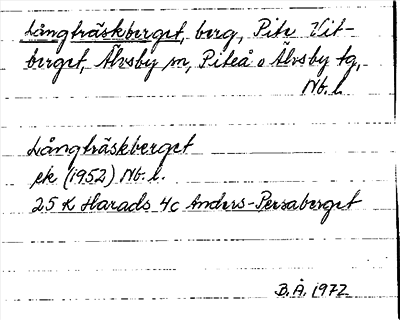 Långträskberget, berg, Pite Vit-
berget, Älvsby sn, Piteå o Älvsby tg,
Nb. l.
Långträskberget
ek (1952) Nb. l.
25 K Harads 4c Anders-Persaberget
B.Å. 1972